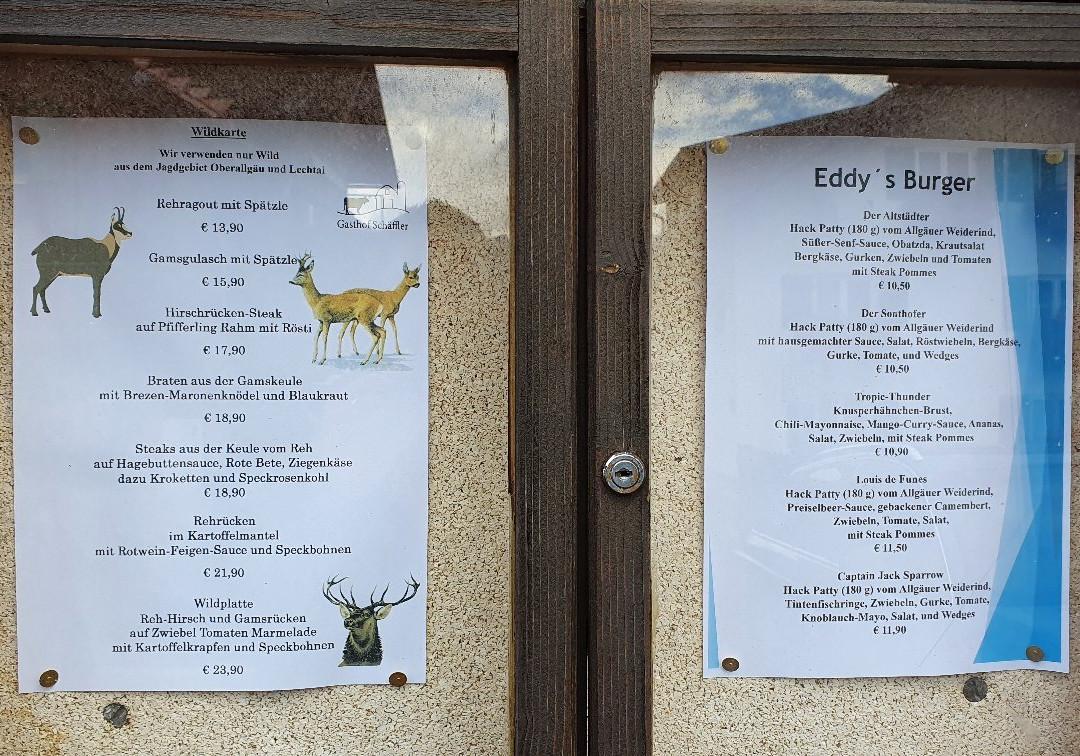 Wildkarte
Wir verwenden nur Wild
aus dem Jagdgebiet Oberallgäu und Lechtal
Rehragout mit Spätzle
€ 13,90
Gasthof Schäffler
Gamsgulasch mit Spätzle
€ 15,90
Hirschrücken-Steak
auf Pfifferling Rahm mit Rösti
€ 17,90
Braten aus der Gamskeule
mit Brezen-Maronenknödel und Blaukraut
€ 18,90
Steaks aus der Keule vom Reh
auf Hagebuttensauce, Rote Bete, Ziegenkäse
dazu Kroketten und Speckrosenkohl
€ 18,90
Rehrücken
im Kartoffelmantel
mit Rotwein-Feigen-Sauce und Speckbohnen
€ 21,90
Wildplatte
Reh-Hirsch und Gamsrücken
auf Zwiebel Tomaten Marmelade
mit Kartoffelkrapfen und Speckbohnen
€ 23,90
Eddy´s Burger
Der Altstädter
Hack Patty (180 g) vom Allgäuer Weiderind,
Süßer-Senf-Sauce, Obatzda, Krautsalat
Bergkäse, Gurken, Zwiebeln und Tomaten
mit Steak Pommes
€ 10,50
Der Sonthofer
Hack Patty (180 g) vom Allgäuer Weiderind
mit hausgemachter Sauce, Salat, Röstwiebeln, Bergkäse,
Gurke, Tomate, und Wedges
€ 10,50
Tropic-Thunder
Knusperhähnchen-Brust,
Chili-Mayonnaise, Mango-Curry-Sauce, Ananas,
Salat, Zwiebeln, mit Steak Pommes
€ 10,90
Louis de Funes
Hack Patty (180 g) vom Allgäuer Weiderind,
Preiselbeer-Sauce, gebackener Camembert,
Zwiebeln, Tomate, Salat,
mit Steak Pommes
€ 11,50
Captain Jack Sparrow
Hack Patty (180 g) vom Allgäuer Weiderind,
Tintenfischringe, Zwiebeln, Gurke, Tomate,
Knoblauch-Mayo, Salat, und Wedges
€ 11,90